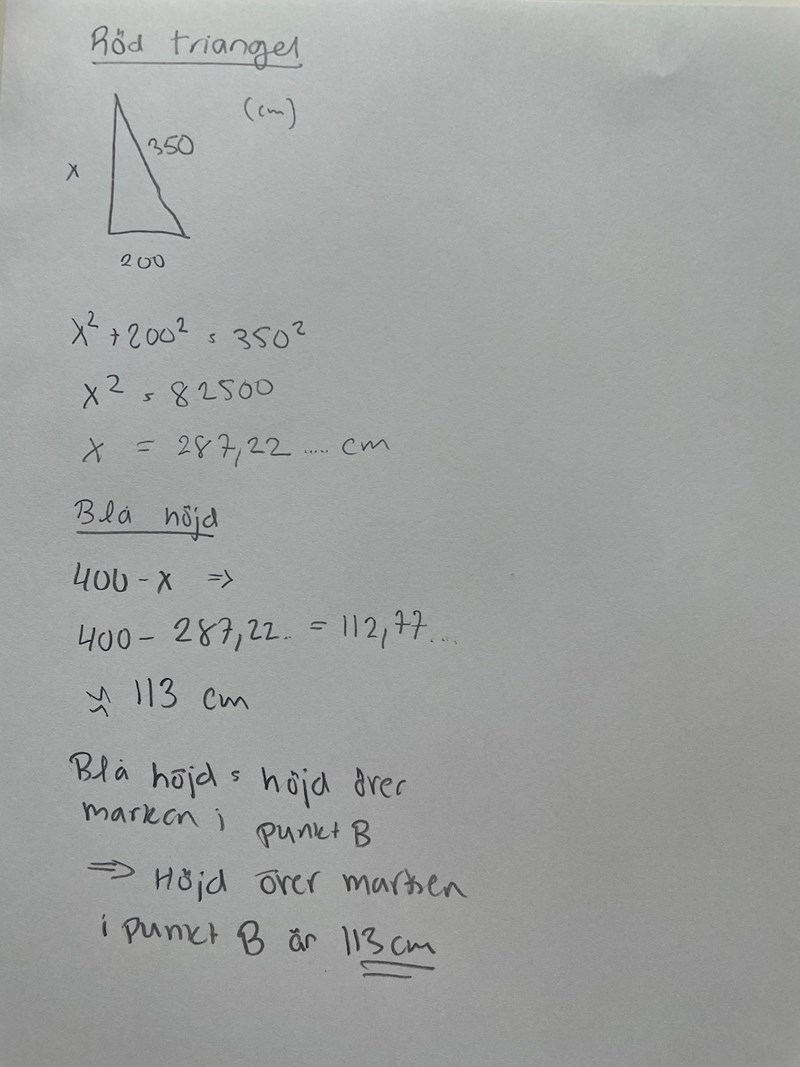 Röd triangel
(cm)
350
x
200
x² + 200² = 350²
x² = 82500
x = 287,22..... cm
Blå höjd
400 - x ⇒
400 - 287,22.. = 112,77....
≈ 113 cm
Blå höjd = höjd över
marken i punkt B
⇒ Höjd över marken
i punkt B är 113 cm